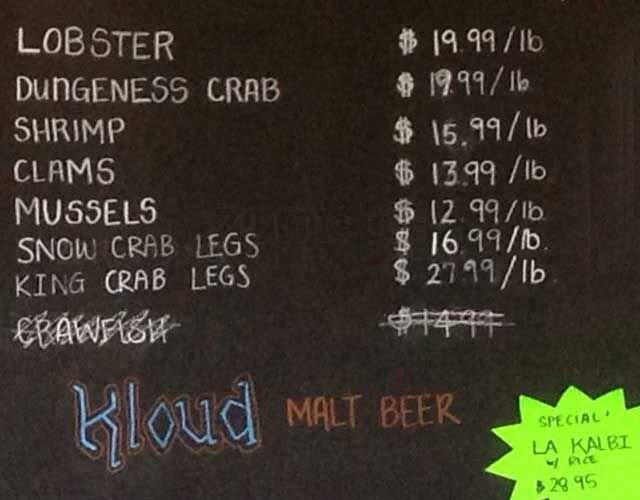 LOBSTER $ 19.99/lb
DUNGENESS CRAB $ 19.99/lb
SHRIMP $ 15.99/lb
CLAMS $ 13.99/lb
MUSSELS $ 12.99/lb
SNOW CRAB LEGS $ 16.99/lb.
KING CRAB LEGS $ 27.99/lb
CRAWFISH $14.99
Kloud MALT BEER
SPECIAL!
LA KALBI
w/ RICE
$28.95
zomato